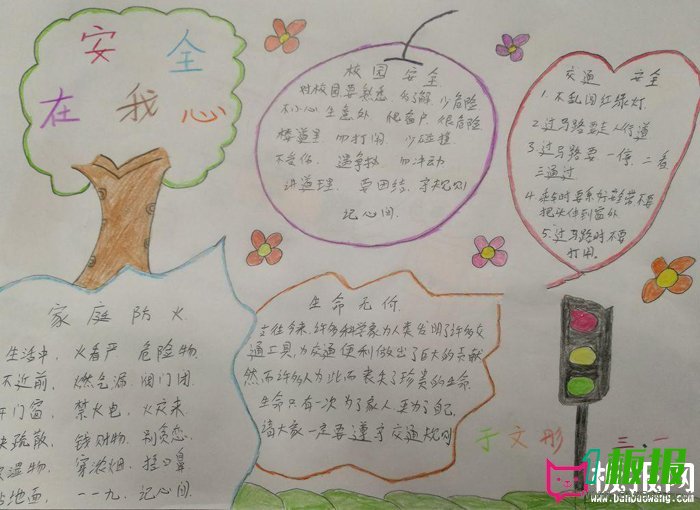 安全
在我心
校园安全
对校园 要熟悉 多了解 少危险
不小心 生意外 爬窗户 很危险
楼道里 勿打闹 少碰撞
不管你 遇事故 勿冲动
讲道理 要团结 守规则
记心间.
交通安全
1.不乱闯红绿灯.
2.过马路要走人行道
3.过马路要一停,二看
三通过.
4.乘车时要系好安全带不要
把头伸到窗外
5.过马路时不要
打闹.
家庭防火
生活中, 火着严 危险物,
不近前, 燃气漏, 闭门闭,
开门窗, 禁火电, 火灾来
快疏散, 钱财物, 别贪恋,
湿物, 穿浓烟, 捂口鼻
地面, 一一九, 记心间.
生命无价
古往今来,许多科学家为人类发明了许多交
通工具,为交通便利做出了巨大的贡献
然而许多人为此而丧失了珍贵的生命.
生命只有一次为了家人 更为了自己
请大家一定要遵守交通规则
于文彤 三.1
板报网
www.banbaowang.com